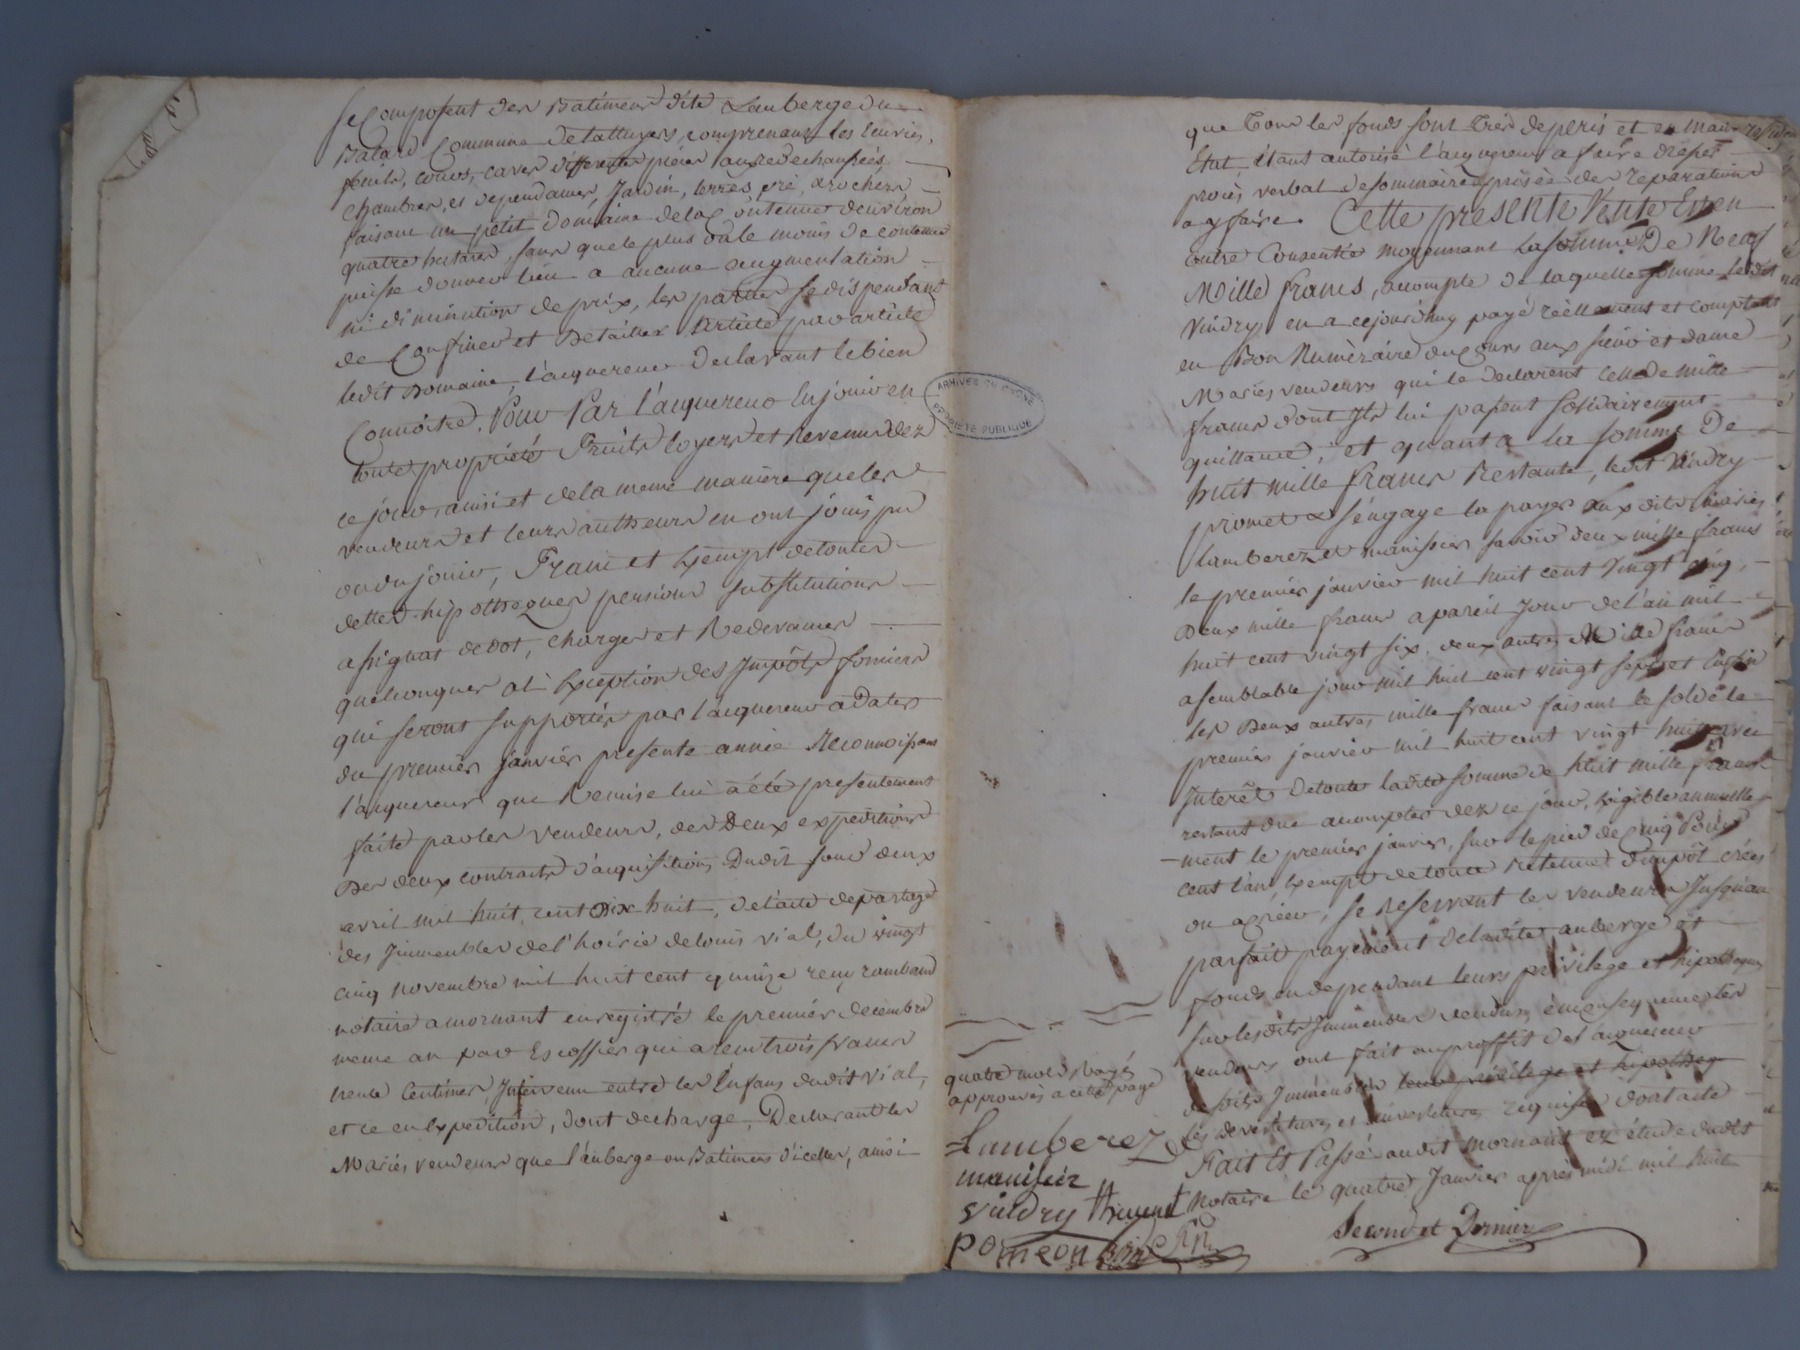 Se Composent des Batimens dits Lauberge du
Batard Commune de tattuyers, comprenant les Ecuries,
fenils, Cours, caves differentes pièces au redechaussées,
chambres, et dependances, Jardin, terres, pré, & rochers
faisant un petit Domaine de la Contenue d'environ
quatre hectares, sans que le plus ou le moins de contenue
puisse donner lieu a aucune augmentation
ni diminution de prix, les parties se dispendant
de Confiner et Détailler Article par article
ledit Domaine, l'acquereur Declarant le bien
Connoitre. Pour Par l'acquereur En jouir en
toute propriété Fruits loyers et Revenus dez
ce jour, ainsi et de la meme manière que les
vendeurs et leurs autheurs en ont joüis pu
ou du joüir, Franc et Exempt de toutes
dettes hipotheques pensions substitutions
assignat de dot, charges et Redevances
quelconques a l'Exception des Impôts fonciers
qui seront supportés par l'acquereur a Dater
du premier janvier presente année Reconnoissant
l'acquereur que Remise lui a été presentement
faite par les vendeurs, des Deux expeditions
Des deux contracts d'acquisitions Dudit jour deux
avril mil huit cent Dix huit, de l'acte de partage
des Immeubles de l'hoirie de Louis vial, du vingt
cinq novembre mil huit cent quinze reçu rambaud
notaire a mornant enregistré le premier decembre
meme an par Escoffier qui a reçu trois francs
trente Centimes, Intervenu entre les Enfans dudit vial,
et ce en Expedition, dont decharge, Declarant les
Mariés vendeurs que l'auberge ou Batimens d'icelles, ainsi
ARCHIVES DU RHONE
PROPRIÉTÉ PUBLIQUE
que Tous les fonds sont très deperis et en mauvais
Etat, étant autorisé l'acquereur a faire dresser
procès verbal de sommaire prisée des reparations
a y faire. Cette presente Vente Est en
outre Consentie moyennant la somme De Neuf
Mille francs, acompte de laquelle somme ledit
Vindry en a cejourd'huy payé réellement et comptant
en Bon Numéraire du Cours aux sieur et dame
Mariés vendeurs qui le declarent celle de mille
francs dont Ils lui passent solidairement
quittance, et quant a la somme De
huit mille francs Restante, ledit Vindry
promet & s'engage la payer aux dits mariés
Lamberez et manissier savoir deux mille francs
le premier janvier mil huit cent vingt cinq,
Deux mille francs a pareil Jour de l'an mil
huit cent vingt six, deux autres Mille francs
a semblable jour mil huit cent vingt sept, et Enfin
les Deux autres mille francs faisant le solde le
premier janvier mil huit cent vingt huit avec
Interêt de toute ladite somme de huit mille francs
restant due acompter dez ce jour, Exigible annuelle
-ment le premier janvier, sur le pied de Cinq Pour
cent l'an, Exempt de toute Retenue d'impôt créés
ou a créer, se Reservant les vendeurs Jusqu'au
parfait payement de ladite auberge et
fonds en dependant leurs privilege et hipotheque
sur lesdits Immeubles vendus, en consequence les
vendeurs ont fait au proffit de l'acquereur
desdits Immeubles leurs privilege et hipotheq
les devestitures et investitures requises dont acte
Fait Et Passé audit mornant ez étude dudit
Notaire le quatre Janvier après midi mil huit
Second et Dernier
quatre mots rayés
approuvés a cette page
Lamberez
manissier
Vindry Thevenet
poméon